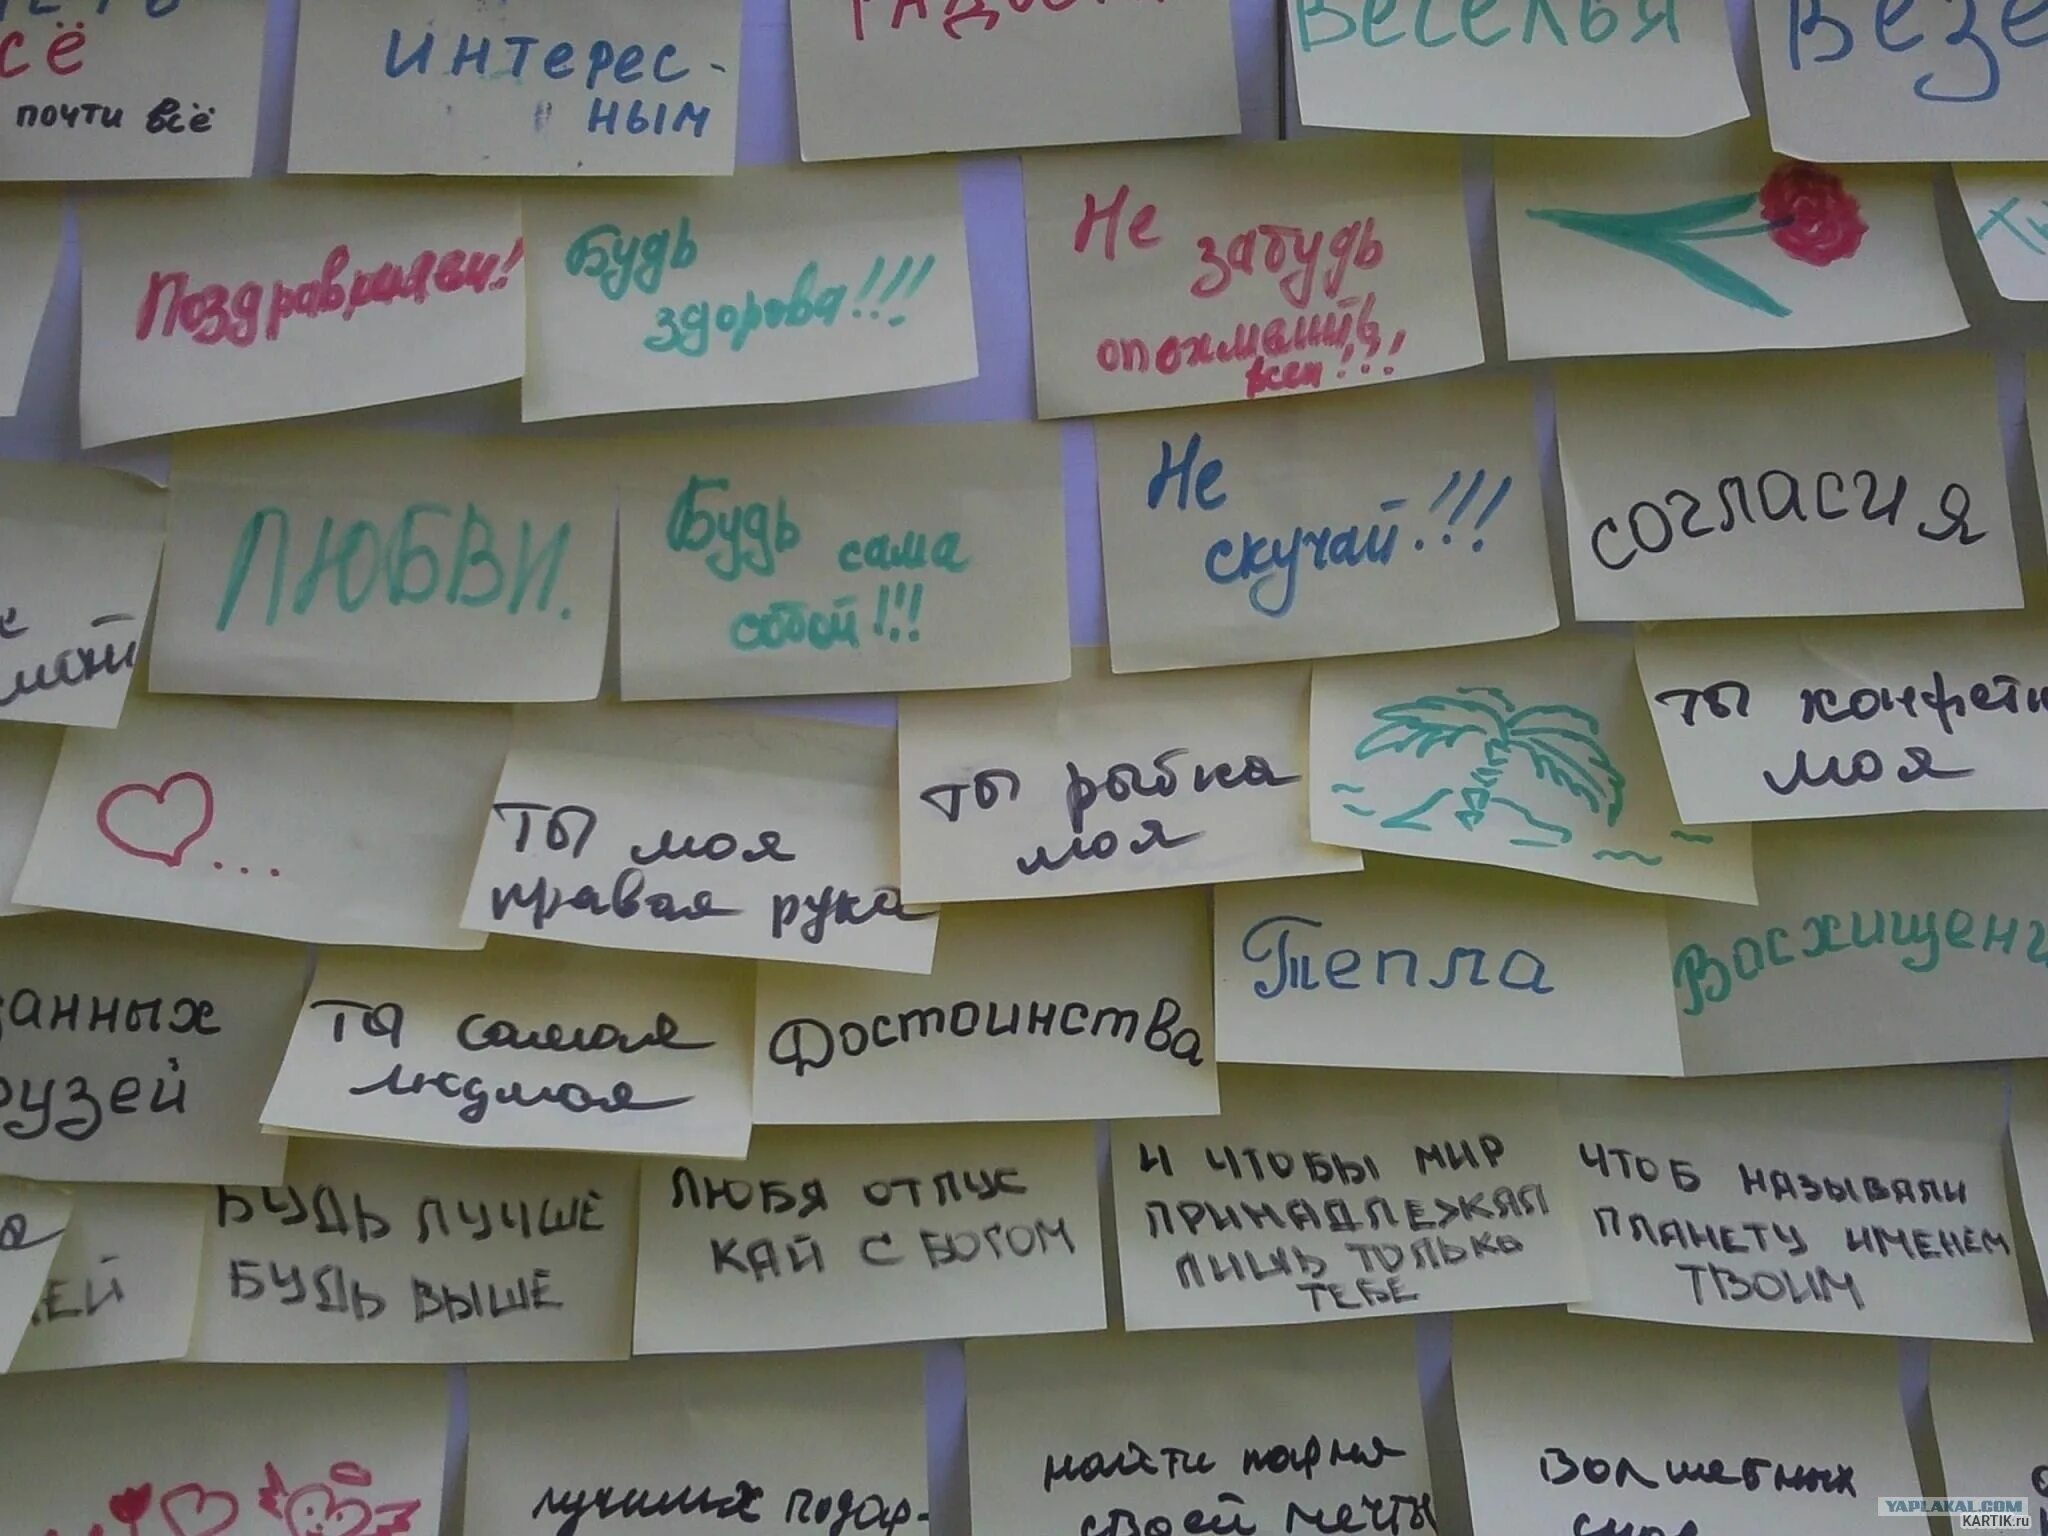 сё
почти всё
интерес-
ным
Радости
Веселья
Везе
Поздравляем!
Будь
здорова!!!
Не
забудь
опохмелить
всех!!!
ЛЮБВИ.
Будь сама
собой!!!
Не
скучай!!!
согласия
ты моя
правая рука
ты рыбка
моя
ты конфетк
моя
данных
рузей
ты самая
людмоя
Достоинства
Тепла
Восхищени
БУДЬ ЛУЧШЕ
БУДЬ ВЫШЕ
ЛЮБЯ ОТПУС
КАЙ С БОГОМ
И ЧТОБЫ МИР
ПРИНАДЛЕЖАЛ
ЛИШЬ ТОЛЬКО
ТЕБЕ
ЧТОБ НАЗЫВАЛИ
ПЛАНЕТУ ИМЕНЕМ
ТВОИМ
ЕЙ
лучших подар-
найти парня
своей мечты
Волшебных
снов
YAPLAKAL.COM
KARTIK.ru